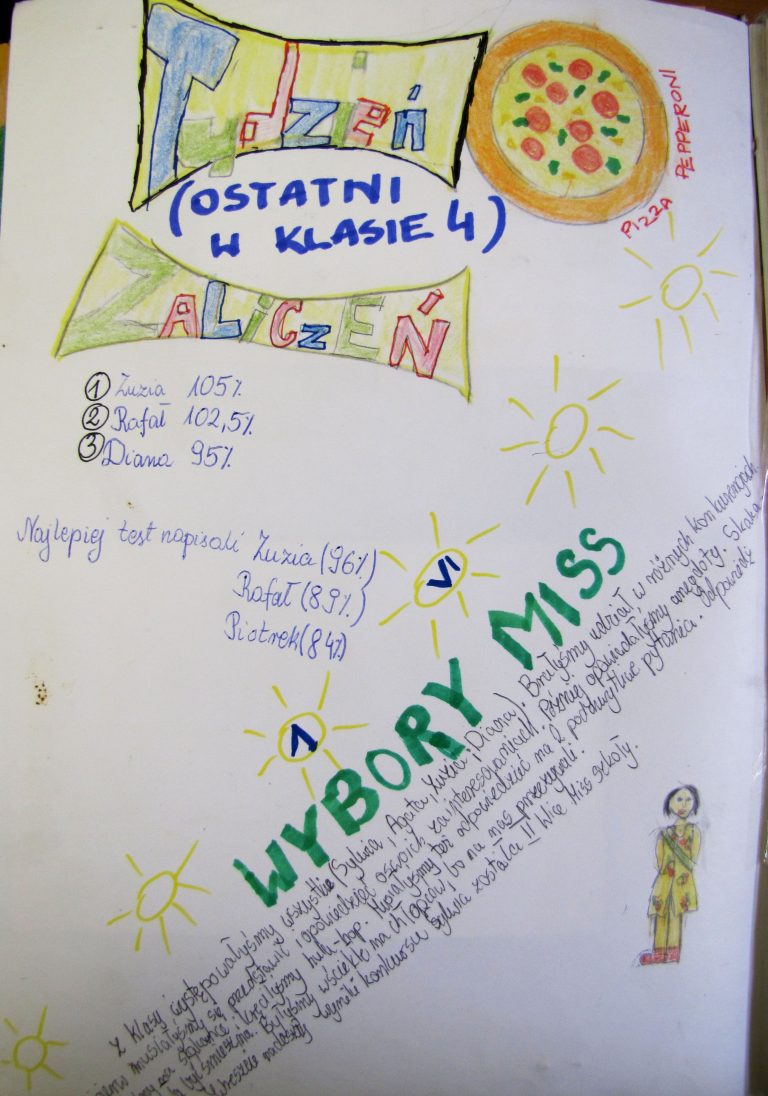 Tydzień
(OSTATNI
W KLASIE 4)
ZALiCZEŃ
PIZZA PEPPERONI
1 Zuzia 105%
2 Rafał 102,5%
3 Diana 95%
Najlepiej test napisali Zuzia (96%)
Rafał (89%)
Piotrek (84%)
1
VI
WYBORY MISS
Z klasy występowałyśmy wszystkie (Sylwia, Agata, Zuzia i Diana). Brałyśmy udział w różnych konkurencjach
musiałyśmy się przedstawić i opowiedzieć o swoich zainteresowaniach. Później opowiadałyśmy anegdoty. Skaka
na skakance i kręciłyśmy hula hop. Musiałyśmy też odpowiedzieć na 2 podchwytliwe pytania. Odpowiedź
być śmieszna. Byłyśmy wściekłe na chłopców, bo na nas przezywali.
Wreszcie nadeszły wyniki konkursu Sylwia została II Wice Miss szkoły.